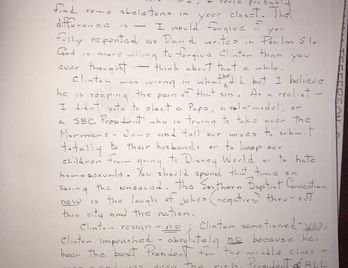 find some skeletons in your closet. The
difference is — I would forgive if you
fully repented as David writes in Psalm 51.
God is more willing to forgive Clinton than you
ever thought — think about that a while.
Clinton was wrong in what he did but I believe
he is reaping the pain of that sin. As a realist -
I didn't vote to elect a Pope, a role-model, or
a SBC President who is trying to take over the
Mormans - Jews and tell our wives to submit
totally to their husbands or to keep our
children from going to Disney World or to hate
homosexuals. You should spend that time on
saving the unsaved. The Southern Baptist Convention
now is the laugh of jokes (negative) thru-out
this city and the nation.
Clinton resign - no; Clinton sanctioned - yes;
Clinton impeached - absolutely no because he's
been the best President for the middle class -